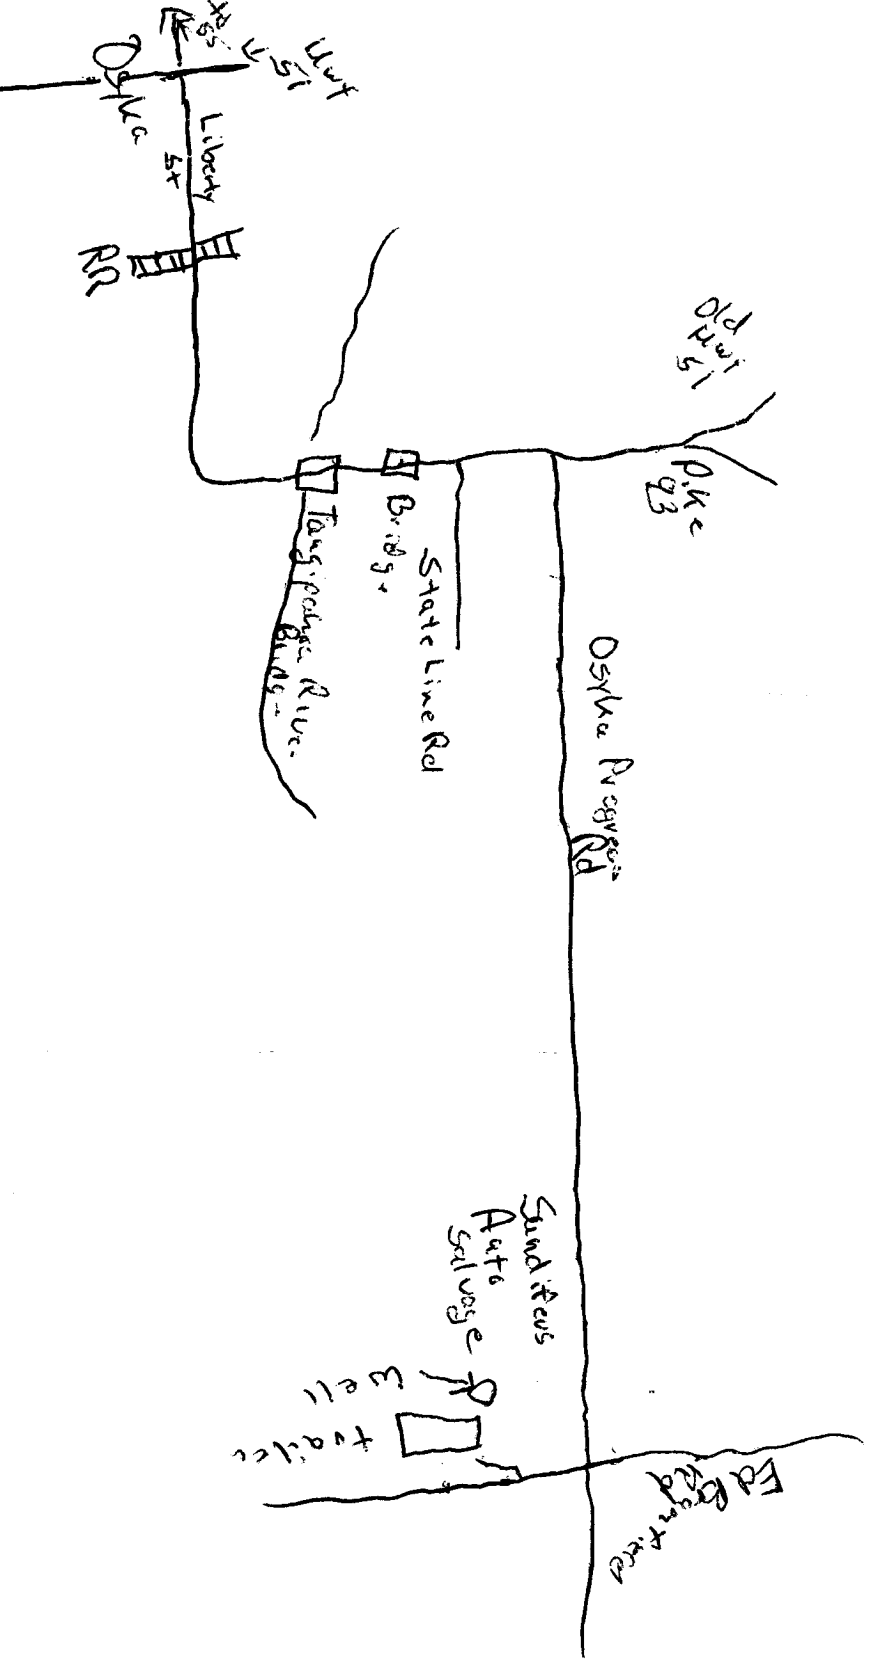 Hwy
51
to
55
Osyka
Liberty
St
RR
Old
Hwy
51
Pike
93
Bridge
Tangipahoa River
Bridge
State Line Rd
Osyka Progress
Rd
Sandifers
Auto
Salvage
Well
trailer
Ed Brumfield
Rd